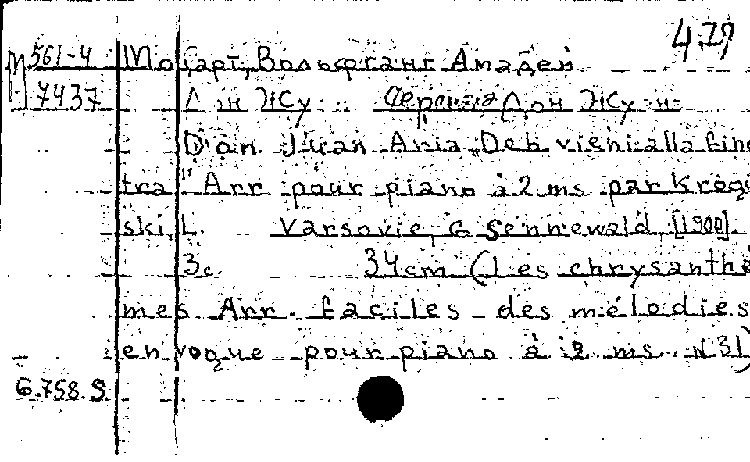 479
М 561-4 Моцарт, Вольфганг Амадей
7437 Дон Жу Серенада Дон Жуан
Don Juan Aria „Deh vieni alla fine
tra" Arr pour piano à 2 ms par Krogu
ski, L. Varsovie, G Sennewald, [1900].
3с 34cm (Les chrysanthè
mes Arr. faciles des mélodies
en vogue pour piano à 2 ms. N 31)
G.758.S